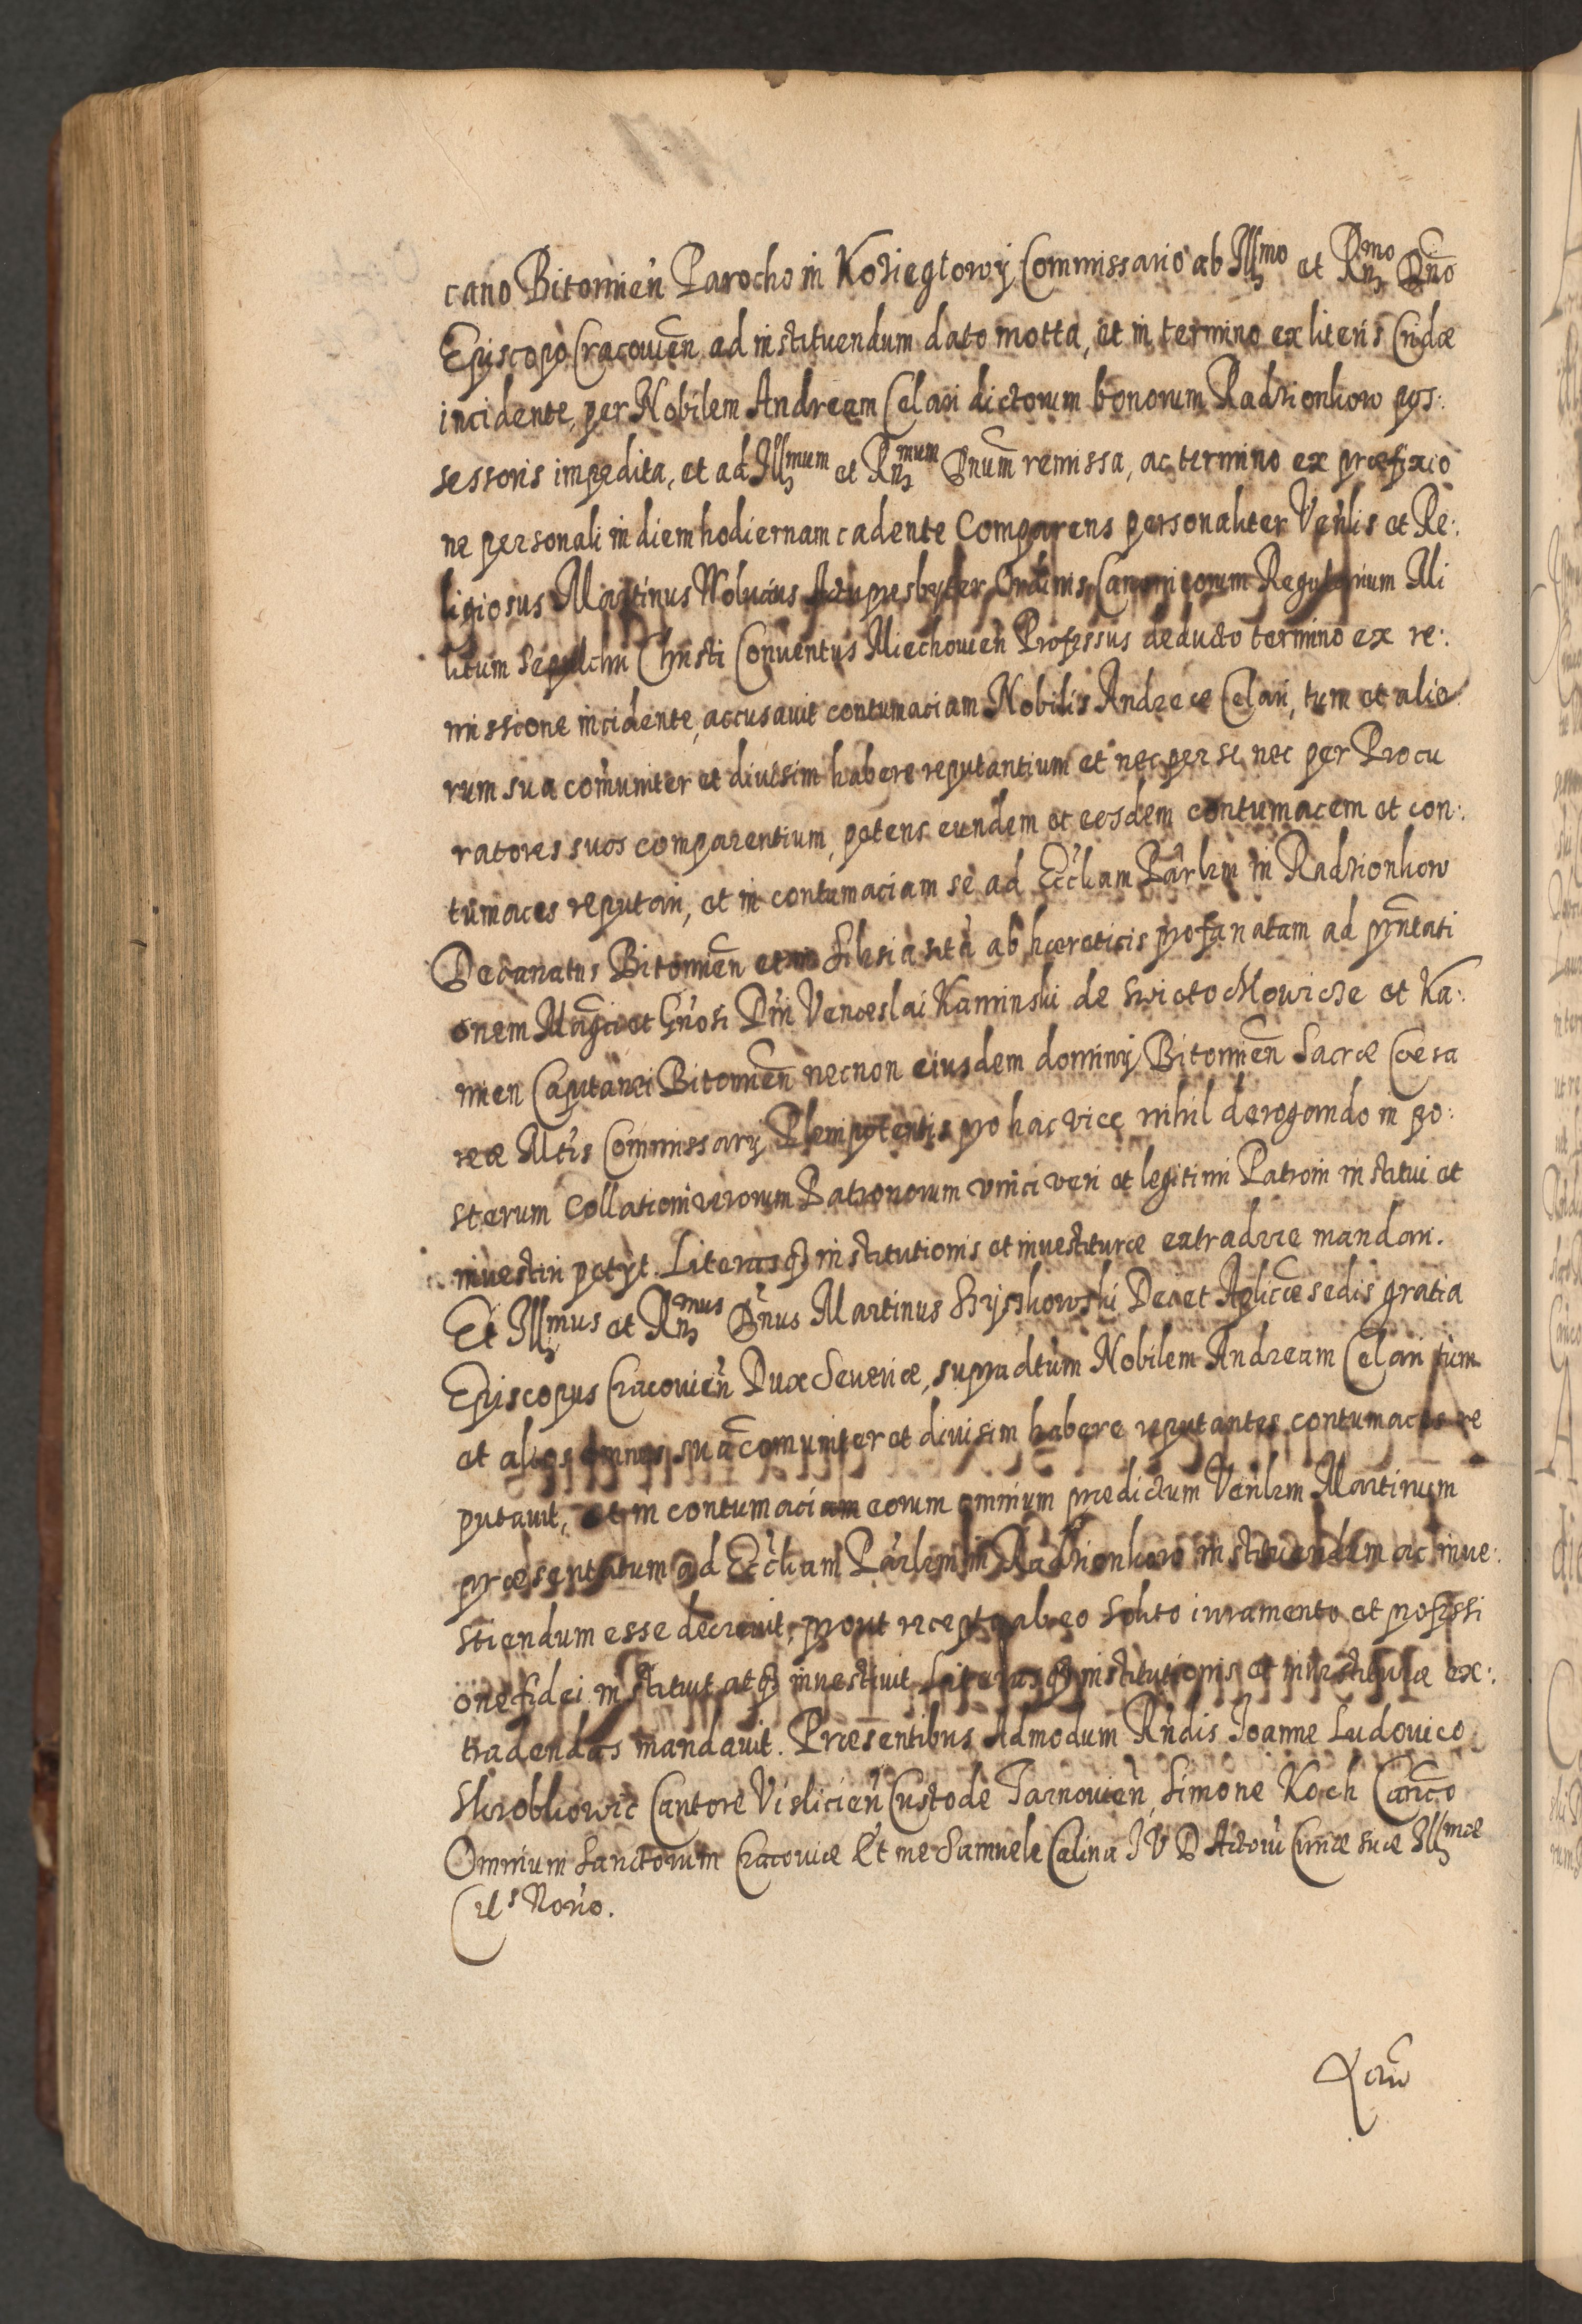 cano Bitomien̄ Parocho in Kozieglowÿ Commissario ab Illmo et Rmo Dn̄o
Episcopo Cracouien̄ ad instituendum dato motta, et in termino ex literis Cridæ
incidente, per Nobilem Andream Celari dictorum bonorum Radzionkow pos:
sessoris impedita, et ad Illmum et Rmum Dnum̄ remissa, ac termino ex præfixio
ne personali in diem hodiernam cadente Comparens personaliter Ven̄lis et Re:
ligiosus Martinus Actupresbyter Ordinis Canonicorum Regularium Mi
litum Sepulchri Christi Conuentus Miechouien̄ Professus deducto termino ex re:
missione incidente, accusauit contumaciam Nobilis Andreæ Celari, tum et alio
rum sua com̄uniter et diuisim habere reputantium et nec per se nec per Procu
ratores suos comparentium, petens eundem et eosdem contumacem et con:
tumaces reputari, et in contumaciam se ad Eccl̄iam Par̄lem in Radzionkow
Decanatus Bitomien̄ et in Silesia sitā ab hæreticis profanatam ad pn̄tati
onem Mag̃ci et Gn̄osi Dn̄i Venceslai Kaminski de Swieto Mowicze et Ka:
mien Capitanei Bitomien̄ necnon eiusdem dominÿ Bitomien̄ Sacræ Cæsa
reæ Mtis Commissarÿ Plenipotentis pro hac vice nihil derogando in po:
sterum Collationi verorum Patronorum vnici veri et legitimi Patroni institui et
inuestiri petÿt Literasq institutionis et inuestituræ extradere mandari.
Et Illmus et Rmus Dn̄us Martinus Szyszkowski Dei et Aplicæ sedis gratia
Episcopus Cracouien̄ Dux Seueriæ, supradtum̄ Nobilem Andream Celari tum
et alios omnes sua com̄uniter et diuisim habere reputantes contumaces re
putauit, et in contumaciam eorum omnium prædictum Ven̄lem Martinum
præsentatum ad Eccl̄iam Par̄lem in Radzionkow instituendum ac inue:
stiendum esse decreuit, prout recepto ab eo solito iuramento et professi
one fidei instituit atq inuestiuit Literasq institutionis et inuestituræ ex:
tradendas mandauit. Præsentibus Admodum Rn̄dis Joanne Ludouico
Skrobkowic Cantore Vislicien̄ Custode Tarnouien̄, Simone Koch Can̄co
Omnium Sanctorum Cracouiæ Et me Samuele Calina J V D Actorū Curiæ suæ Illmæ
Cels Nor̄io.